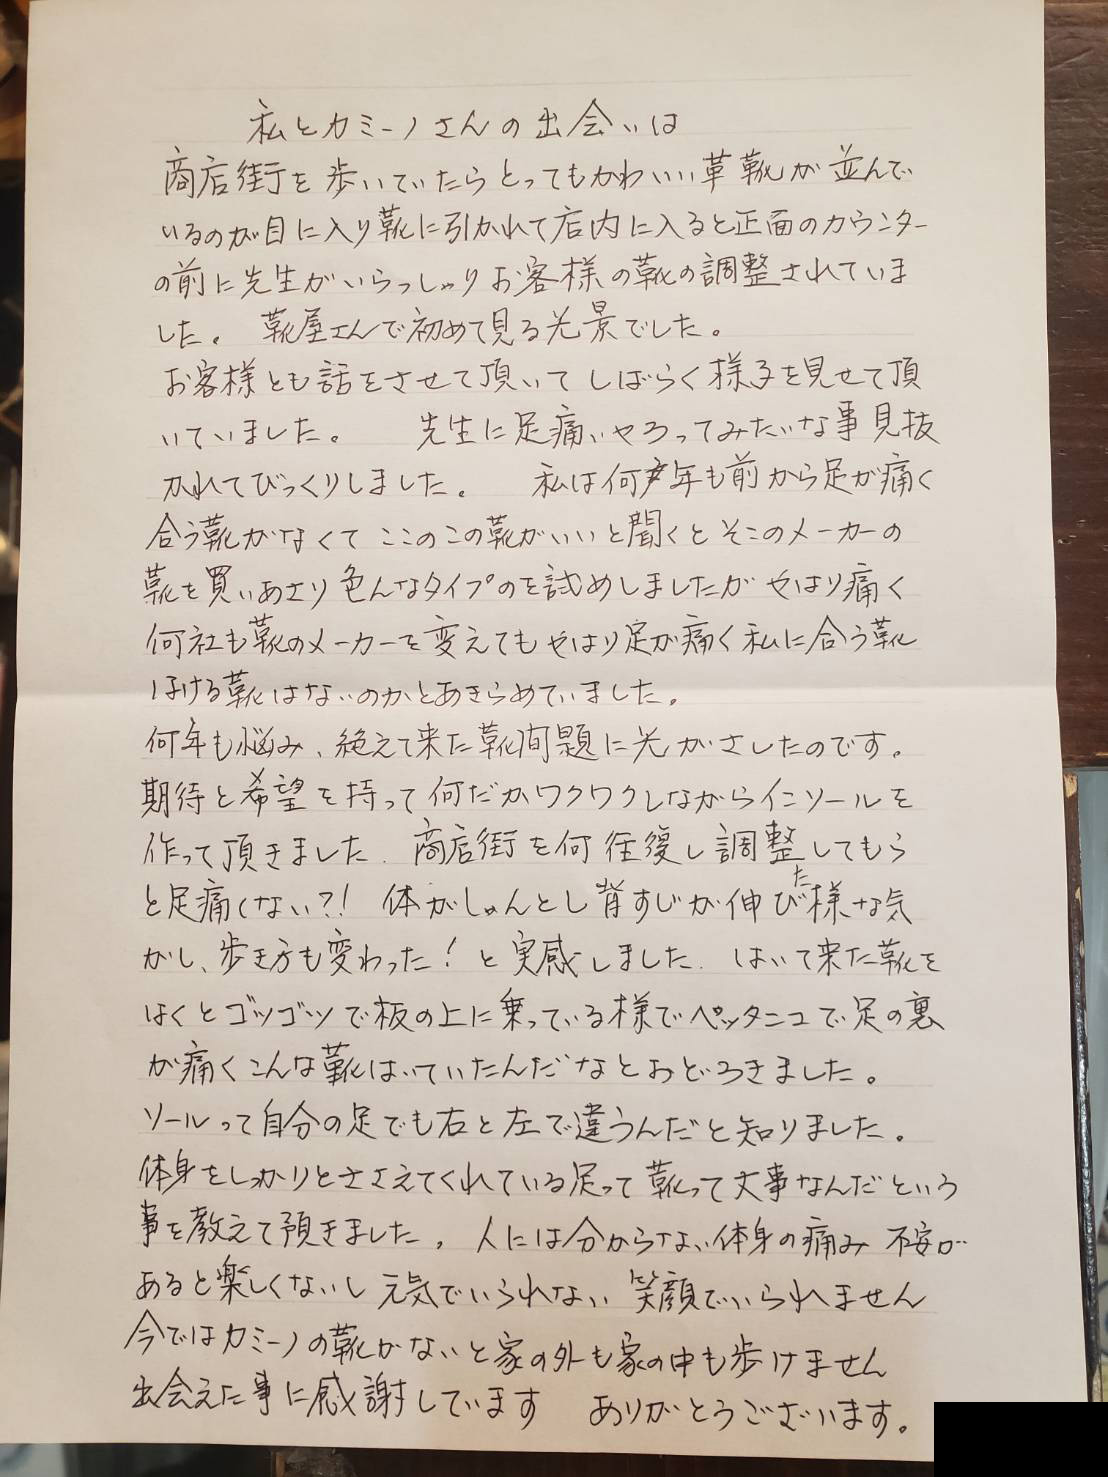 私とカミーノさんの出会いは
商店街を歩いていたらとってもかわいい革靴が並んで
いるのが目に入り靴に引かれて店内に入ると正面のカウンター
の前に先生がいらっしゃりお客様の靴の調整されていま
した。 靴屋さんで初めて見る光景でした。
お客様とも話をさせて頂いて しばらく様子を見せて頂
いていました。 先生に足痛いやろってみたいな事見抜
かれてびっくりしました。 私は何年も前から足が痛く
合う靴がなくて ここのこの靴がいいと聞くと そこのメーカーの
靴を買いあさり 色んなタイプのを試めしましたが やはり痛く
何社も靴のメーカーを変えても やはり足が痛く私に合う靴
はける靴はないのかとあきらめていました。
何年も悩み、絶えて来た靴問題に光がさしたのです。
期待と希望を持って何だかワクワクしながらインソールを
作って頂きました. 商店街を何往復し調整してもら
と足痛くない?! 体がしゅんとし背すじが伸びた様な気
がし、歩き方も変わった! と実感しました. はいて来た靴を
はくとゴツゴツで板の上に乗っている様でペッタンコで足の裏
が痛くこんな靴はいていたんだなとおどろきました。
ソールって自分の足でも右と左で違うんだと知りました。
体身をしっかりとささえてくれている足って靴って丈事なんだという
事を教えて頂きました, 人には分からない体身の痛み 不安が
あると楽しくないし 元気でいられない 笑顔でいられません
今ではカミーノの靴がないと家の外も家の中も歩けません
出会えた事に感謝しています ありがとうございます。